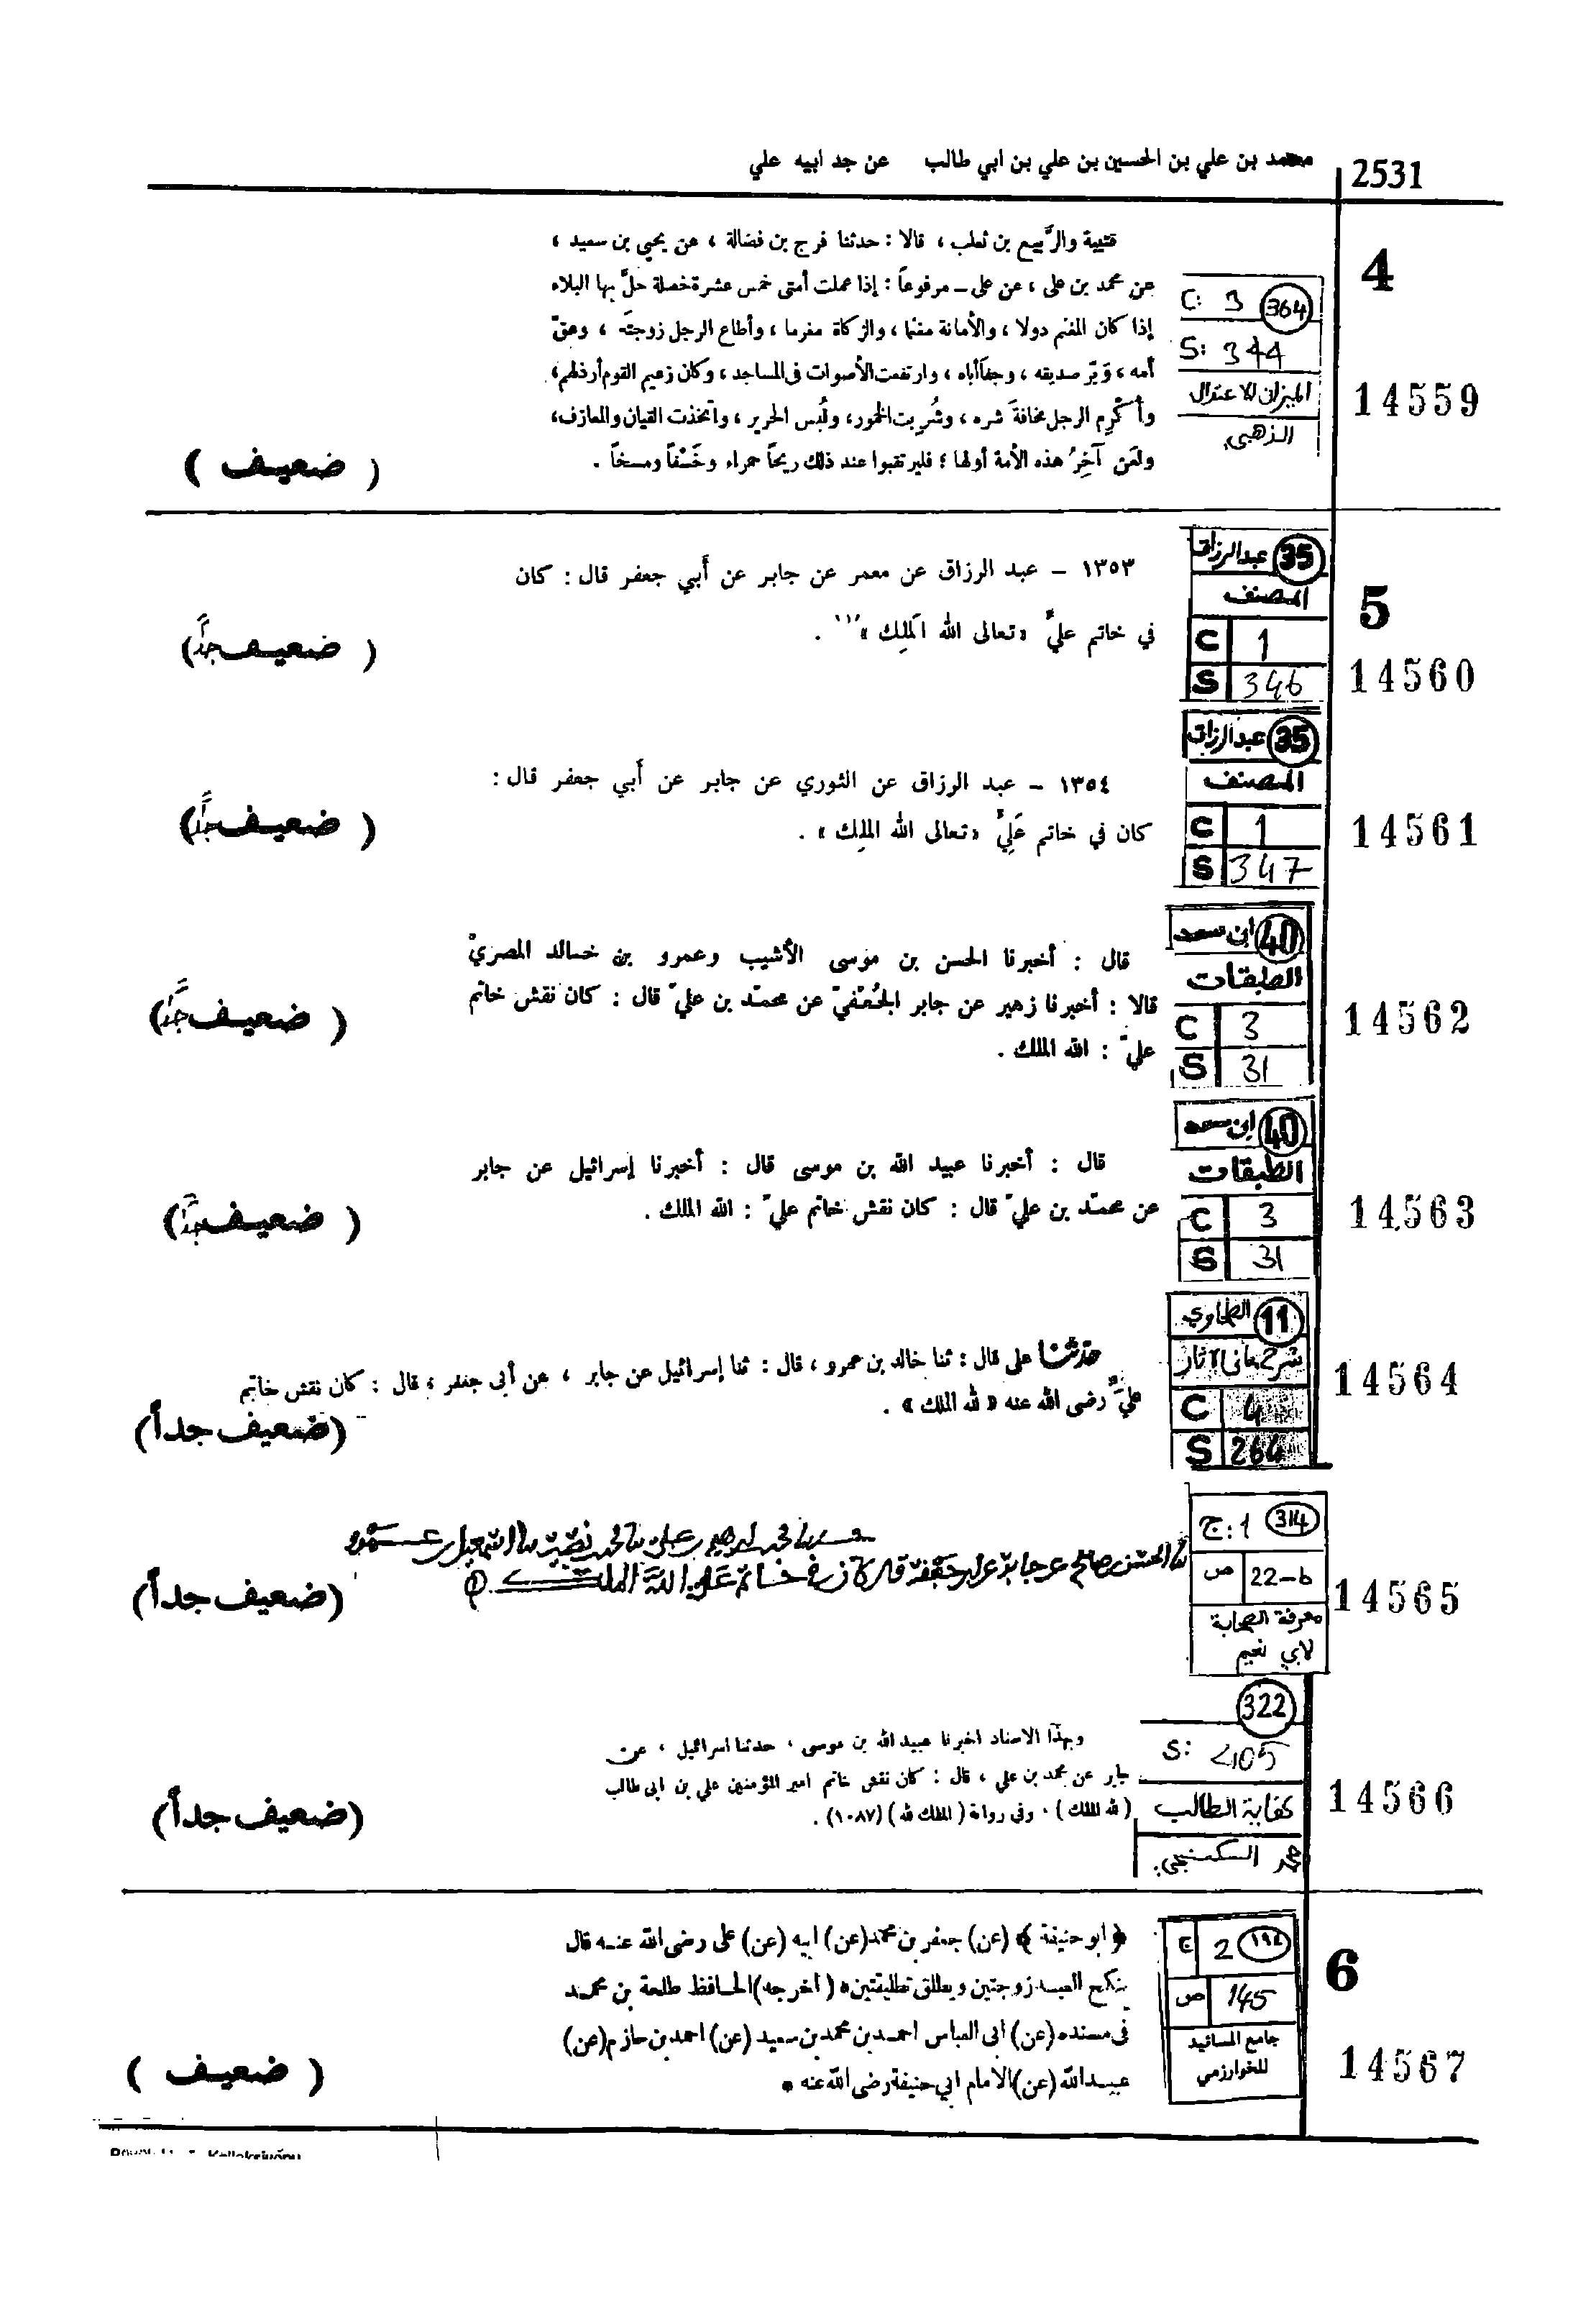 محمد بن علي بن الحسين بن علي بن ابي طالب عن جد ابيه علي
2531
4
C: 3 364
S: 344
الميزان للاعتدال
الذهبي
14559
قتيبة والرَّبيع بن ثعلب ، قالا : حدثنا فرج بن فضالة ، عن يحيى بن سعيد ،
عن محمد بن على ، عن على – مرفوعاً : إذا عملت أمتى خمس عشرة خصلة حلَّ بها البلاء
إذا كان المغنم دولا ، والأمانة مغنما ، والزكاة مغرما ، وأطاع الرجل زوجتَه ، وعقّ
أمه ، وَبَرّ صديقه ، وجفَا أباه ، وارتفعت الأصوات فى المساجد ، وكان زعيم القوم أرذلهم ،
وأُكْرِم الرجل مخافةَ شره ، وشُربت الخمور ، ولُبس الحرير ، واتخذت القيان والمعازف ،
ولَعَن آخِرُ هذه الأمة أولها ؛ فليرتقبوا عند ذلك ريحاً حمراء وخَسْفاً ومسخاً .
( ضعيف )
5
35 عبدالرزاق
المصنف
C 1
S 346
14560
١٣٥٣ – عبد الرزاق عن معمر عن جابر عن أَبي جعفر قال : كان
في خاتم عليٍّ «تعالى الله المَلِك » .
( ضعيف جداً)
35 عبدالرزاق
المصنف
C 1
S 347
14561
١٣٥٤ – عبد الرزاق عن الثوري عن جابر عن أَبي جعفر قال :
كان في خاتم عَلِيٍّ «تعالى الله الملِك » .
( ضعيف جداً)
40 ابن سعد
الطبقات
C 3
S 31
14562
قال : أخبرنا الحسن بن موسى الأشيب وعمرو بن خالد المصريّ
قالا : أخبرنا زهير عن جابر الجُعْفيّ عن محمّد بن عليّ قال : كان نقش خاتم
عليّ : الله الملك .
( ضعيف جداً)
40 ابن سعد
الطبقات
C 3
S 31
14563
قال : أخبرنا عبيد الله بن موسى قال : أخبرنا إسرائيل عن جابر
عن محمّد بن عليّ قال : كان نقش خاتم عليّ : الله الملك .
( ضعيف جداً)
11 الطحاوي
شرح معانى الآثار
C 4
S 264
14564
حدثنا على قال : ثنا خالد بن عمرو ، قال : ثنا إسرائيل عن جابر ، عن أبى جعفر ، قال : كان نقش خاتم
عليٍّ رضى الله عنه « لله الملك » .
(ضعيف جداً)
314 ج: 1
ص 22-b
معرفة الصحابة
لابي نعيم
14565
(ضعيف جداً)
322
S: 405
كفاية الطالب
14566
وبهذا الاسناد اخبرنا عبيد الله بن موسى ، حدثنا اسرائيل ، عن
جابر عن محمد بن علي ، قال : كان نقش خاتم امير المؤمنين علي بن ابى طالب
( لله الملك ) ، وفى رواية ( الملك لله ) (١٠٨٧) .
(ضعيف جداً)
6
ج 2 ١٩٤
ص 145
جامع المسانيد
للخوارزمي
14567
﴿ ابو حنيفة ﴾ (عن) جعفر بن محمد (عن) ابيه (عن) على رضى الله عنه قال
ينكح العبد زوجتين ويطلق تطليقتين * (اخرجه) الحافظ طلحة بن محمد
فى مسنده (عن) ابى العباس احمد بن محمد بن سعيد (عن) احمد بن حازم (عن)
عبيد الله (عن) الامام ابي حنيفة رضى الله عنه *
( ضعيف )